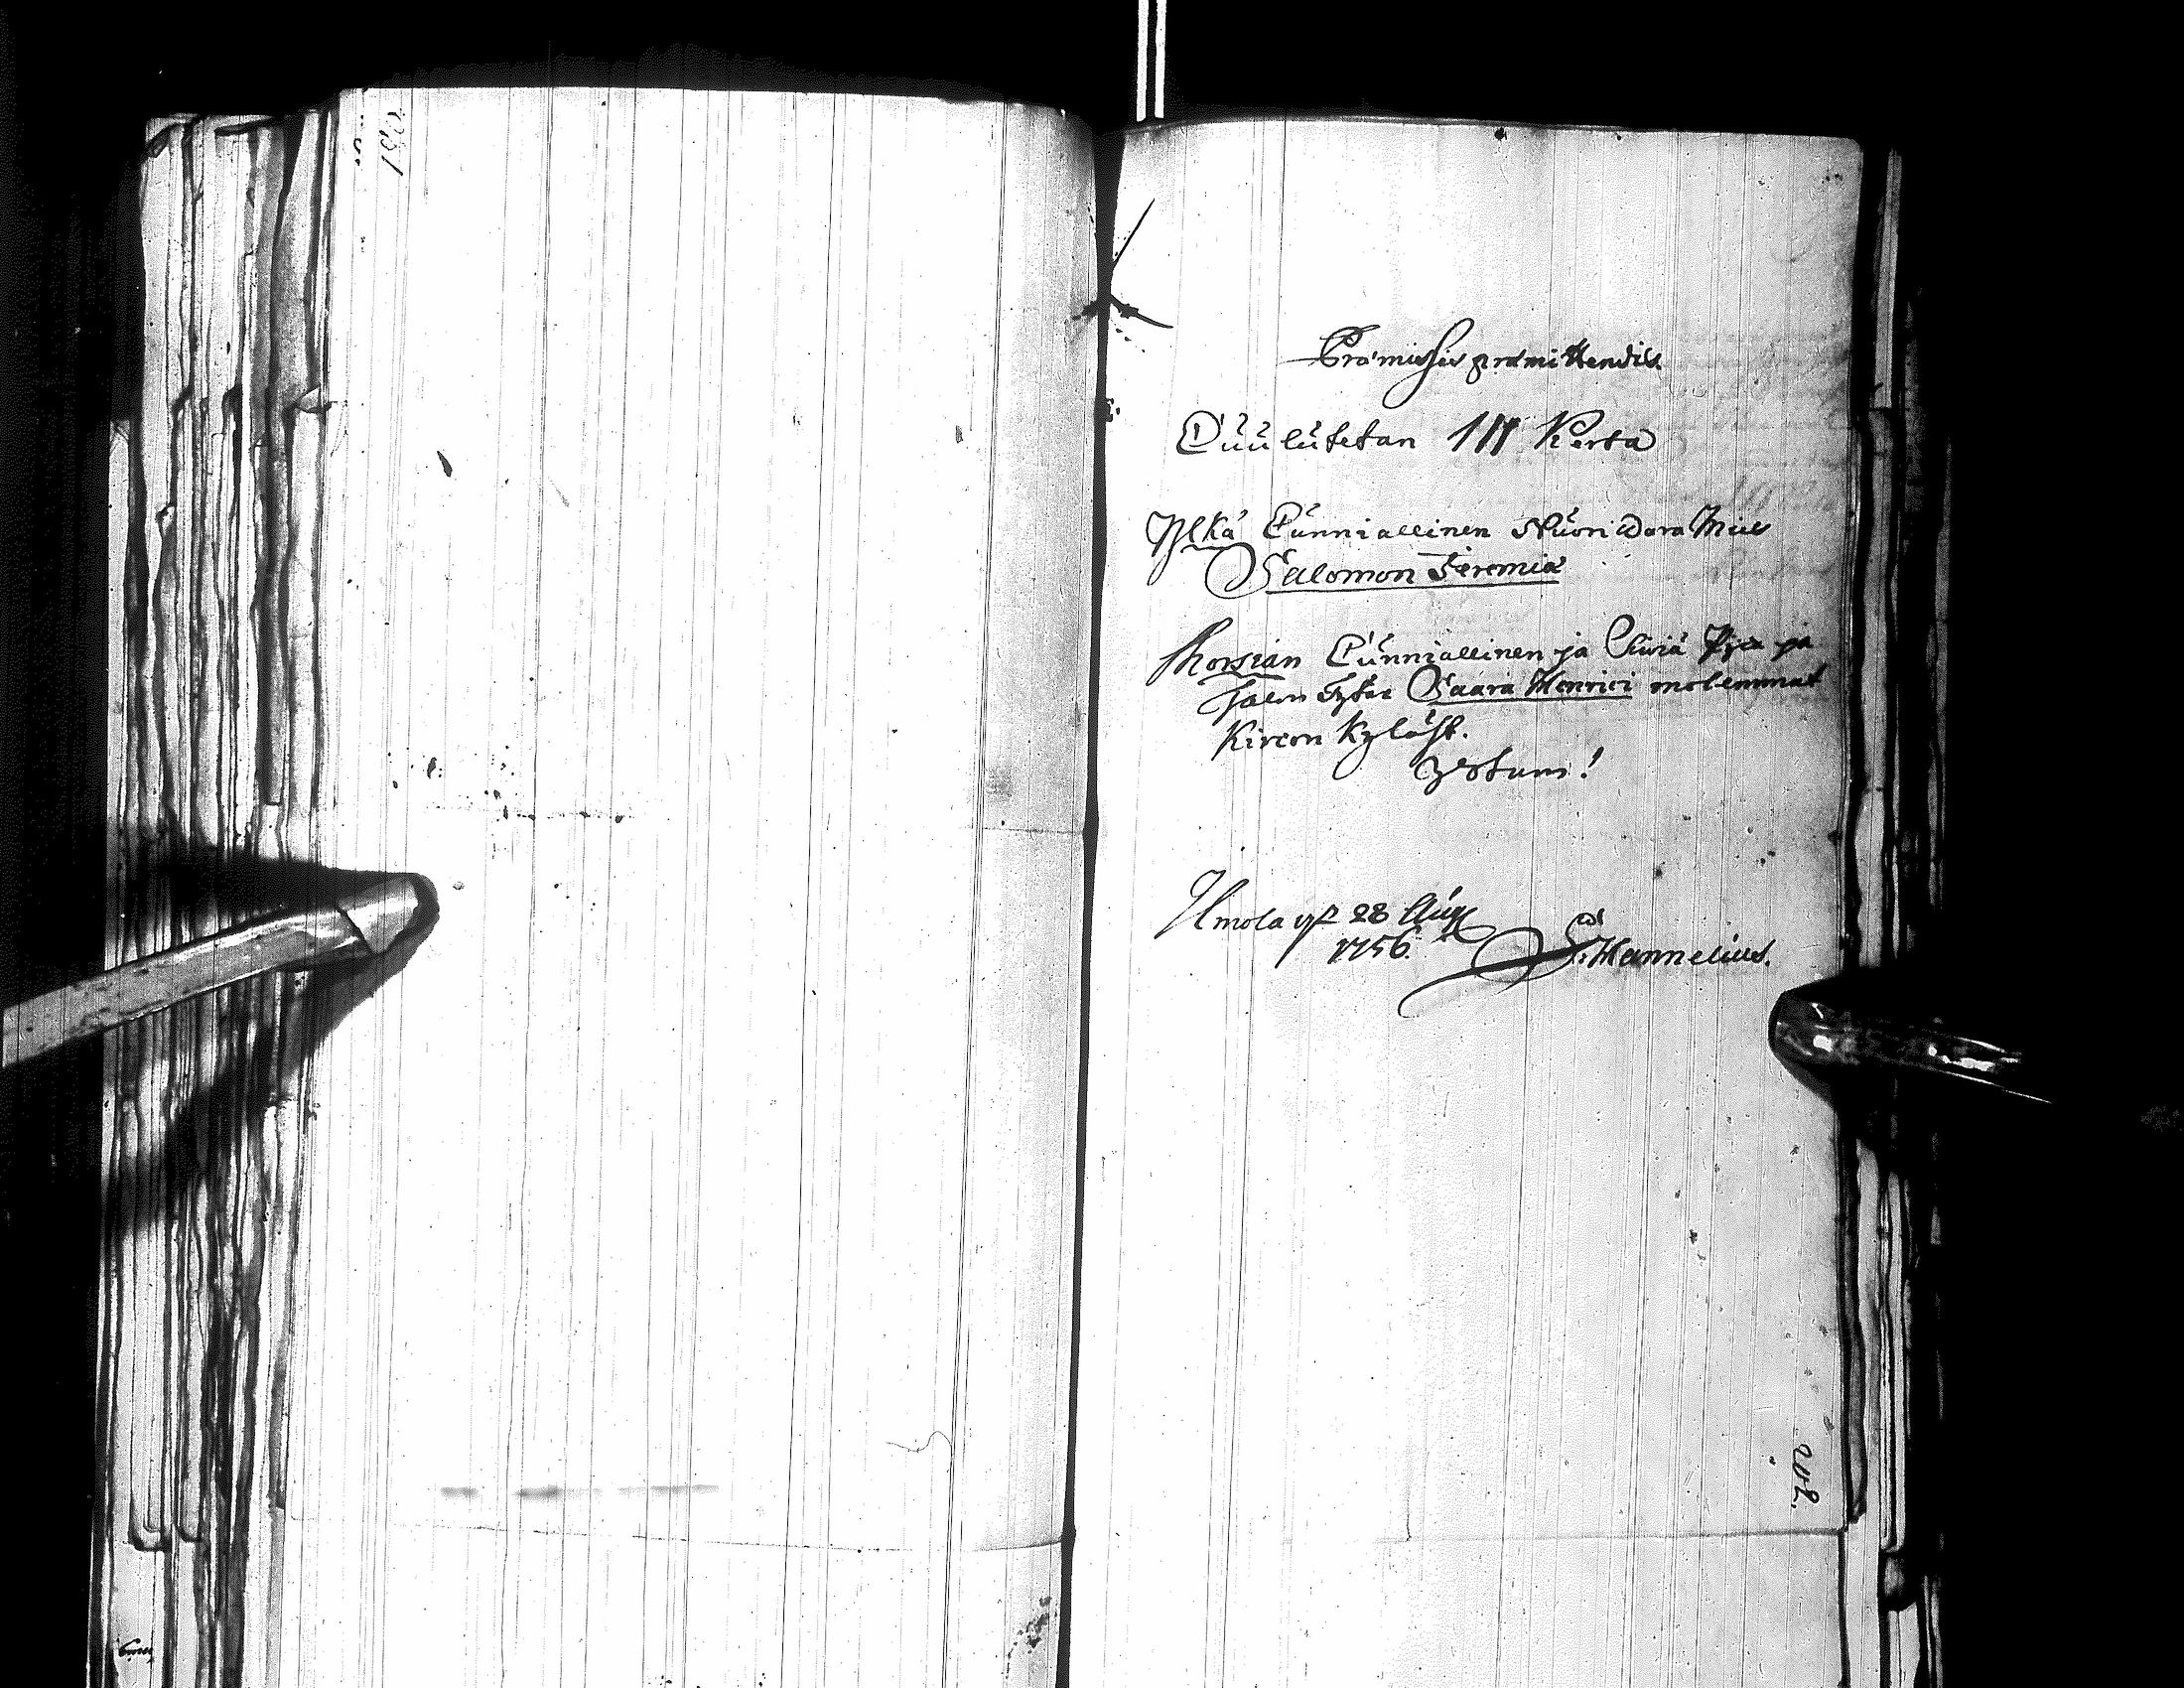 Præmissis præmittendis.
Cuulutetan III Kerta
Ylkä Cunniallinen Nuori Dora Mies
Salomon Jeremiæ
Morsian Cunniallinen ja Siwiä Pijca ja
Talon Tytär Saara Henrici molemmat
Kircon Kyläst.
Votum!
Ilmola y 28 Aug
1756.
S. Mannelius.
202.